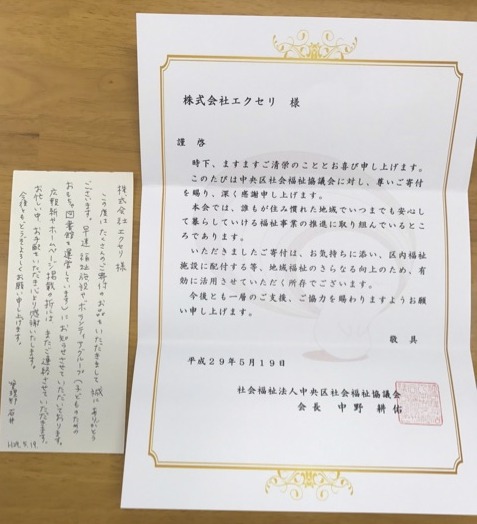 株式会社エクセリ 様
謹 啓
時下、ますますご清栄のこととお喜び申し上げます。
このたびは中央区社会福祉協議会に対し、尊いご寄付
を賜り、深く感謝申し上げます。
本会では、誰もが住み慣れた地域でいつまでも安心し
て暮らしていける福祉事業の推進に取り組んでいるとこ
ろであります。
いただきましたご寄付は、お気持ちに添い、区内福祉
施設に配付する等、地域福祉のさらなる向上のため、有
効に活用させていただく所存でございます。
今後とも一層のご支援、ご協力を賜わりますようお願
い申し上げます。
敬 具
平成29年5月19日
社会福祉法人中央区社会福祉協議会
会長 中野 耕佑
株式会社エクセリ様
この度はたくさんのご寄付のお品をいただきまして誠にありがとう
ございます。早速、福祉施設やボランティアグループ(子どものための
おもちゃ図書館を運営しています)にお知らせさせていただいております。
広報紙やホームページ掲載の折には、またご連絡させていただきます。
お忙しい中、お手配をいただき心より感謝いたします。
今後ともどうぞよろしくお願い申し上げます。
管理部 石井
H29.5.19